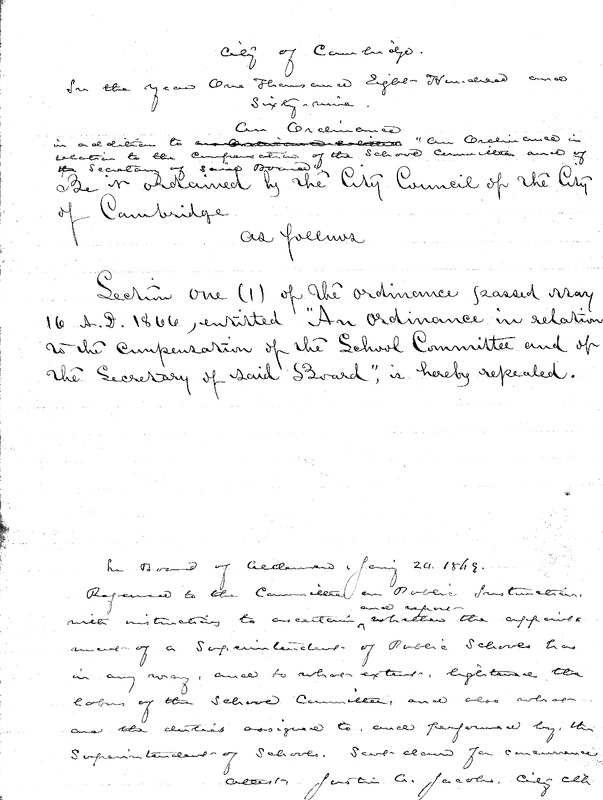 City of Cambridge.
In the year One Thousand Eight Hundred and
Sixty-nine.
An Ordinance
in addition to "An Ordinance in
relation to the compensation of the School Committee and of
the Secretary of said Board"
Be it ordained by the City Council of the City
of Cambridge
as follows
Section one (1) of the ordinance passed May
16 A.D. 1866, entitled "An ordinance in relation
to the compensation of the School Committee and of
the Secretary of said Board", is hereby repealed.
In Board of Aldermen, Jany 20. 1869.
Referred to the Committee on Public Instruction,
and report
with instructions to ascertain whether the appoint-
ment of a Superintendent of Public Schools has
in any way, and to what extent, lightened the
labors of the School Committee, and also what
are the duties assigned to, and performed by, the
Superintendent of Schools. Sent down for concurrence
Attest Justin A. Jacobs, City Clk